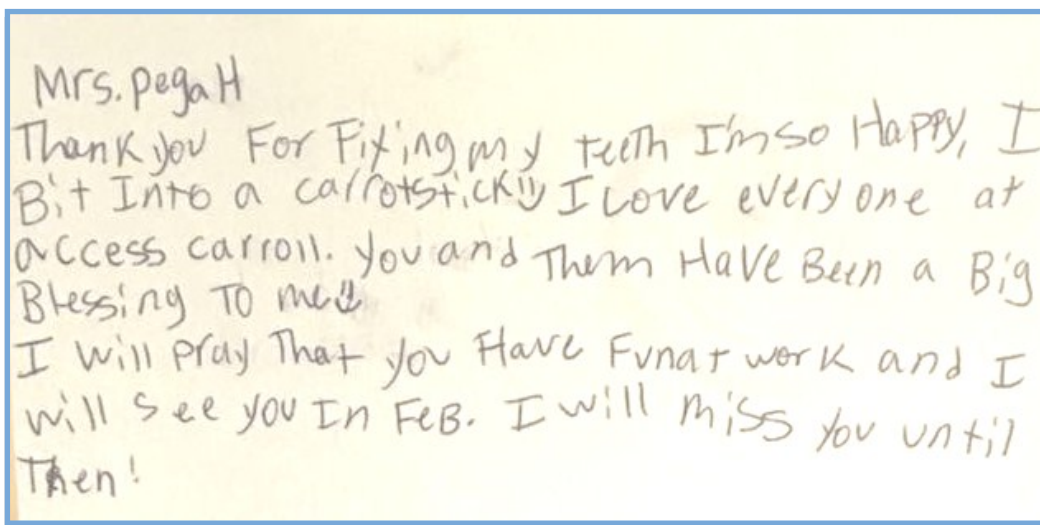 Mrs. pegaH
Thank you For Fixing my teeth I'm so Happy, I
Bit Into a carrotstick☺ I Love everyone at
access carroll. you and Them Have Been a Big
Blessing To me☺
I will pray That you Have Fun at work and I
will see you In FeB. I will miss you until
Then!